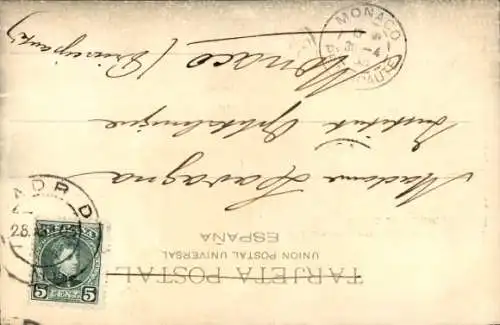 TARJETA POSTAL
UNION POSTAL UNIVERSAL
ESPAÑA
Madame Lavagna
Institut Ophtalmique
Monaco (Principauté)
MONACO
MADRID
28
5 CENT. 5